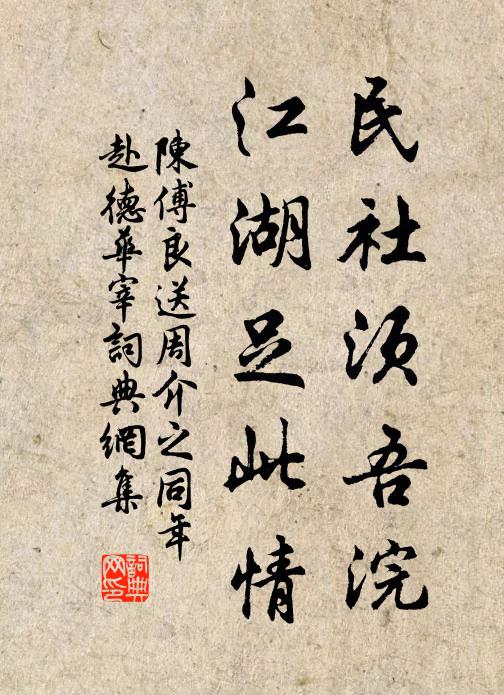 民社須吾浣
江湖足此情
陳傅良送周介之同年
赴德華宰詞典網集
詞典網印